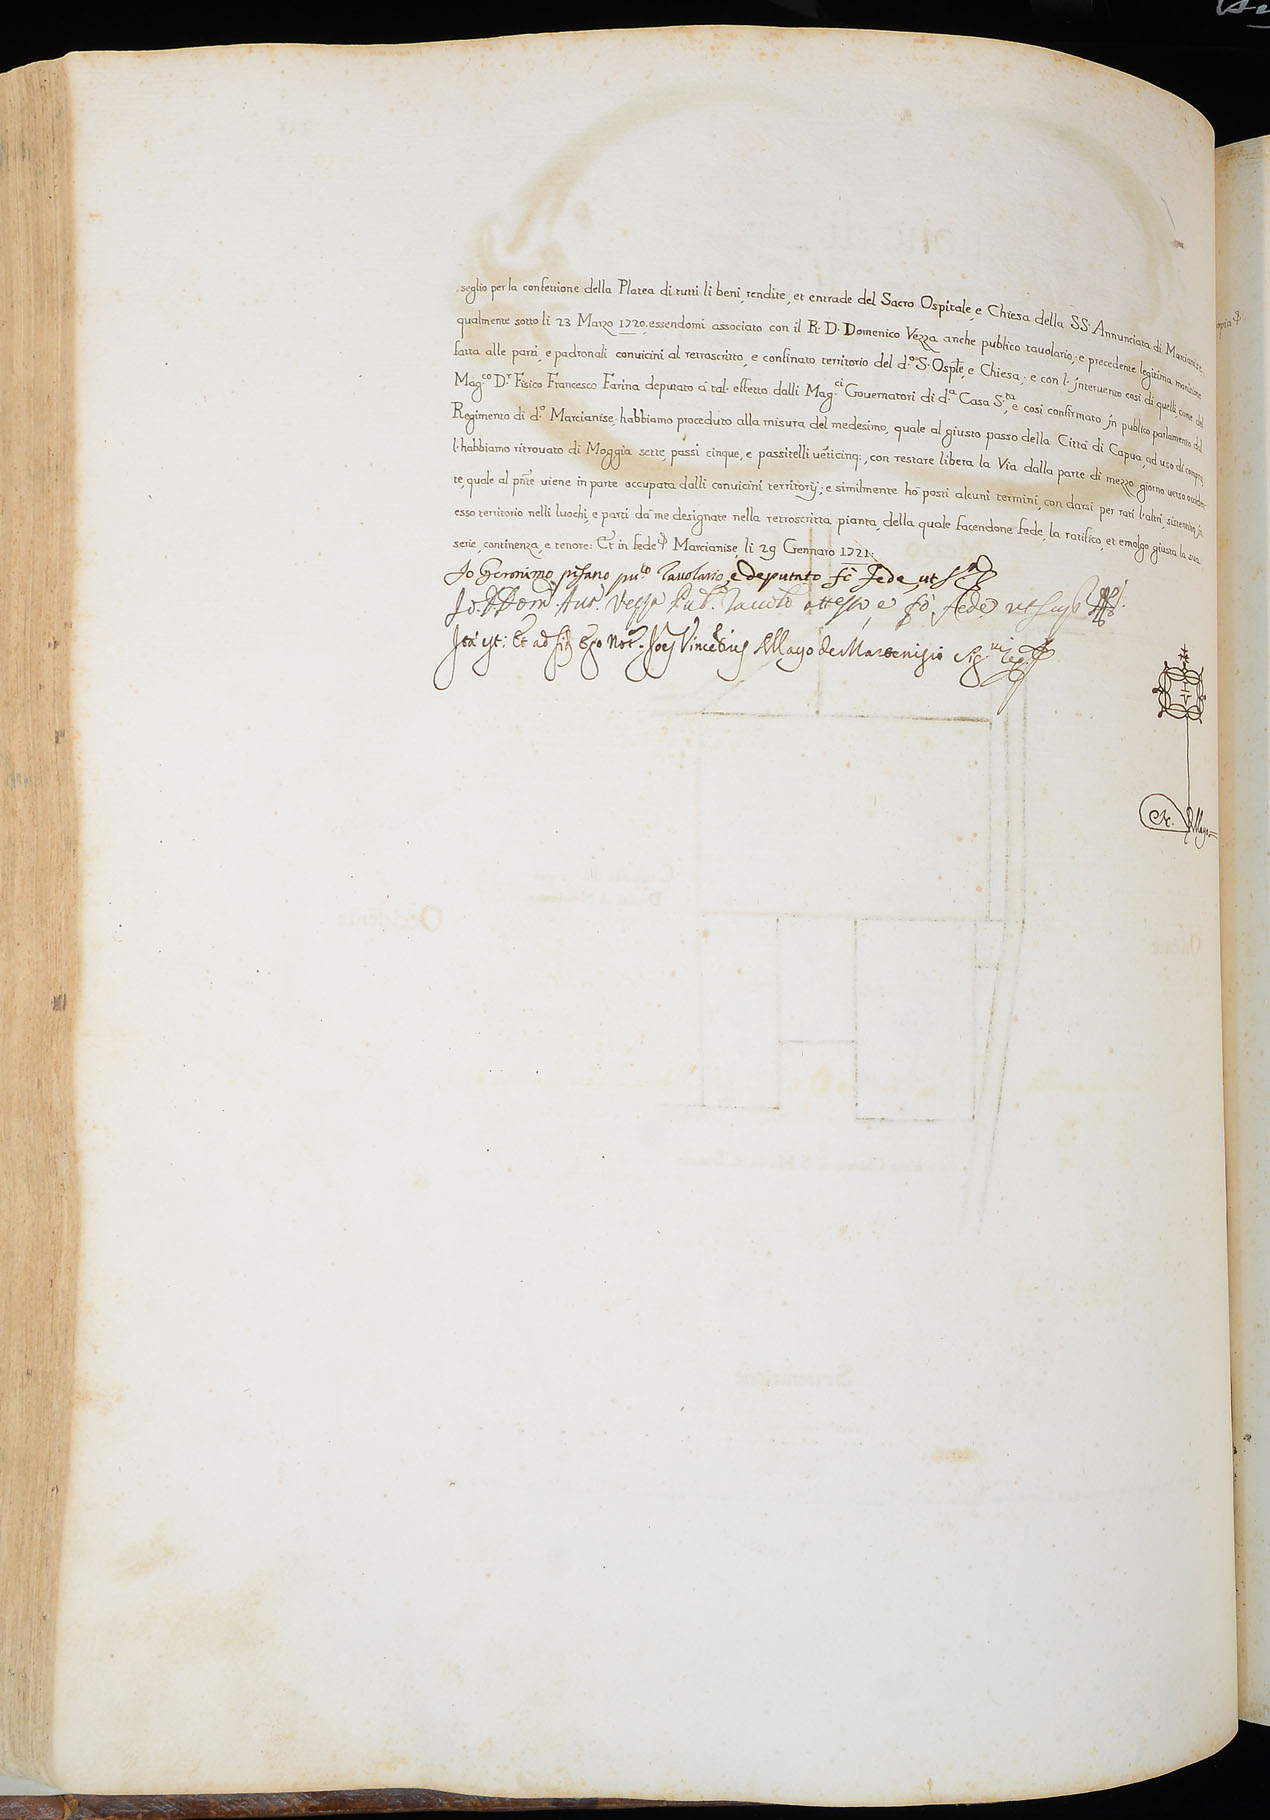 seglio per la confettione della Platea di tutti li beni, rendite, et entrade del Sacro Ospitale, e Chiesa della SS. Annunciata di Marcianise,
qualmente sotto li 23 Marzo 1720. essendomi associato con il R. D. Domenico Vezza anche publico tauolario; e precedente legitima monitione
fatta alle parti, e padronali conuicini al retroscritto, e confinato territorio del d.º S. Osple, e Chiesa; e con l'interuento così di quelli, come del
Mag.co D.r Fisico Francesco Farina deputato à tal' effetto dalli Mag.ci Gouernatori di d.a Casa S.ta, e così confirmato in publico parlamento dal
Regimento di d.º Marcianise; habbiamo proceduto alla misura del medesimo, quale al giusto passo della Città di Capua, ad uso di
l'habbiamo ritrouato di Moggia sette, passi cinque, e passitelli uēticinq;, con restare libera la Via dalla parte di mezzo giorno uerso occiden-
te, quale al pñte uiene in parte occupata dalli conuicini territorij; e similmente hò posti alcuni termini, con darsi per rati l'altri, sistentino in
esso territorio nelli luochi, e parti da me designate nella retroscritta pianta, della quale facendone fede, la ratifico, et emolgo giusta la sua
serie, continenza, e tenore: Et in fede Marcianise, li 29 Gennaro 1721:
Io Geronimo pisano pu.co Tauolario, e deputato fò fede ut s.a
Io D. Dom. Ant. Vezza Pub. Tauolo attesto, e fò fede ut supra
Ita est: Et ad fid. Ego Not. Joes Vincetius Mayo de Marcenisio Sig.ui
N. Mayo
Occidente
Settentrione
opia